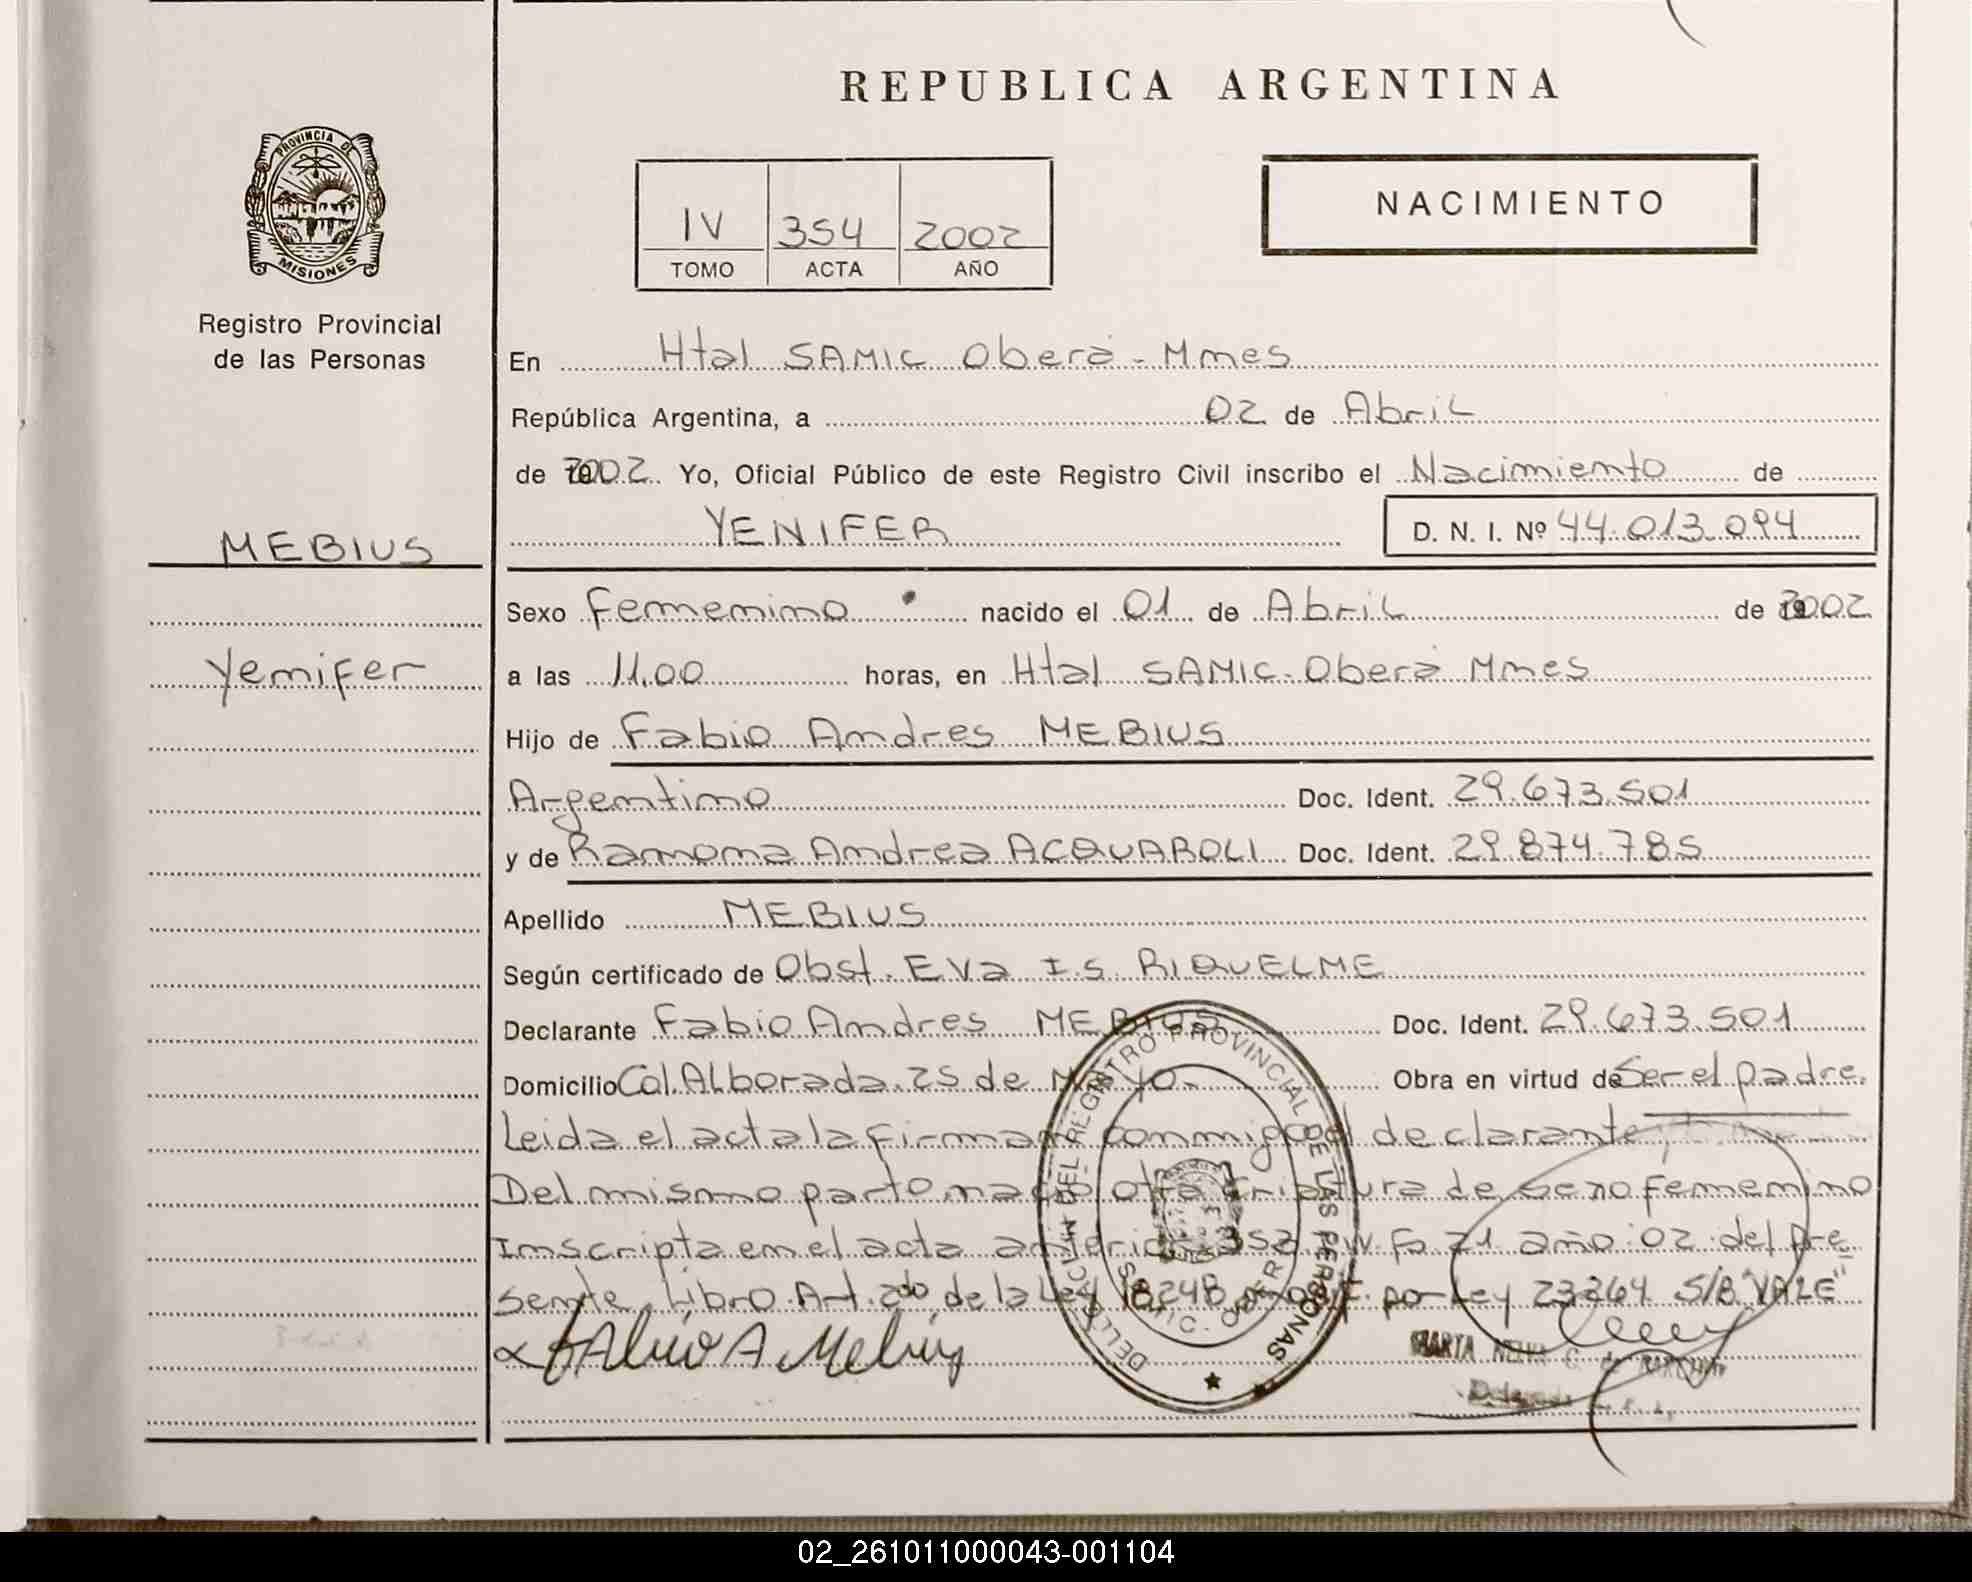 REPUBLICA ARGENTINA
PROVINCIA DE
MISIONES
Registro Provincial
de las Personas
IV 354 2002
TOMO ACTA AÑO
NACIMIENTO
En Htal SAMIC Oberá - Mnes
República Argentina, a 02 de Abril
de 2002. Yo, Oficial Público de este Registro Civil inscribo el Nacimiento de
YENIFER D. N. I. Nº 44.013.094
MEBIUS
Yenifer
Sexo Femenino nacido el 01 de Abril de 2002
a las 11.00 horas, en Htal SAMIC - Oberá Mnes
Hijo de Fabio Andres MEBIUS
Argentino Doc. Ident. 29.673.501
y de Ramona Andrea ACQUAROLI Doc. Ident. 29.874.785
Apellido MEBIUS
Según certificado de Obst. Eva I.S. RIQUELME
Declarante Fabio Andres MEBIUS Doc. Ident. 29.673.501
Domicilio Col. Alborada. 25 de Mayo. Obra en virtud de Ser el padre.
Leida el acta la firman conmigo el declarante
Del mismo parto nació otra criatura de sexo femenino
Inscripta en el acta anterior 353 Fo 21 año 02 del Pre
sente Libro Art. 2do de la Ley 18248 por Ley 23264 S/B "VALE"
Fabio A Mebius
DELEGACION DEL REGISTRO PROVINCIAL DE LAS PERSONAS
SAMIC. OBERA
MARTA
02_261011000043-001104